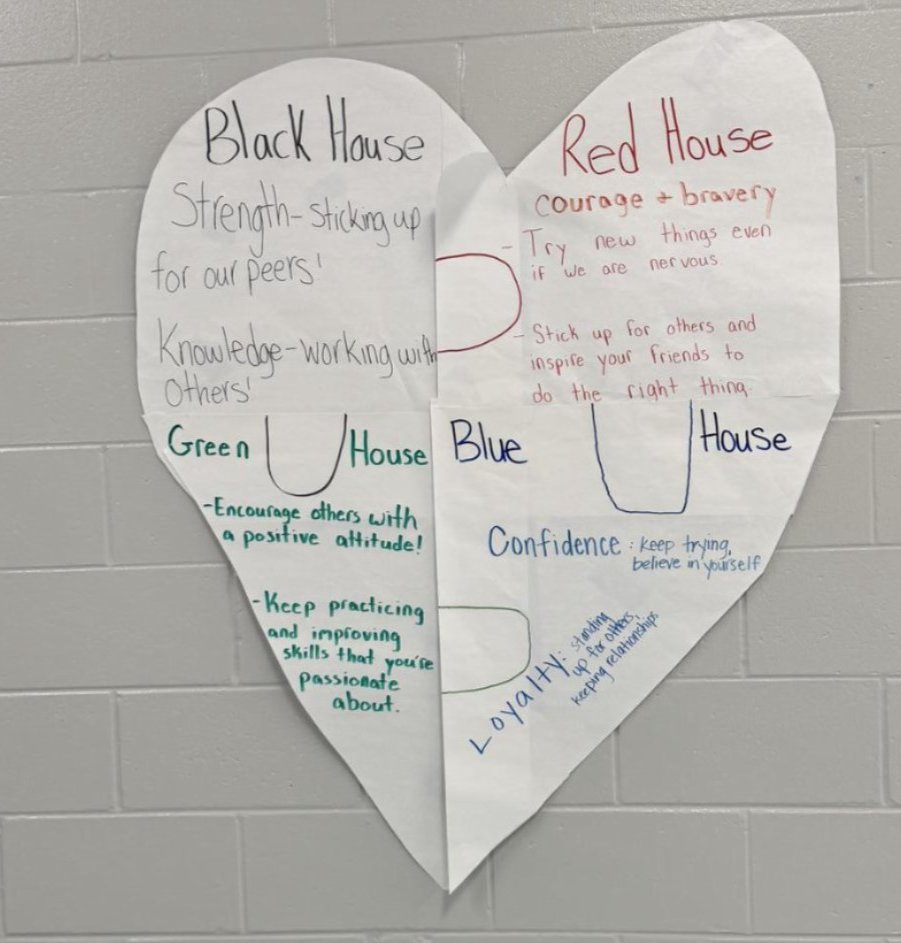 Black House
Strength - Sticking up
for our peers'
Knowledge - working with
Others'
Red House
courage + bravery
- Try new things even
if we are nervous.
- Stick up for others and
inspire your friends to
do the right thing.
Green House
- Encourage others with
a positive attitude!
- Keep practicing
and improving
skills that you're
passionate
about.
Blue House
Confidence : keep trying,
believe in yourself
Loyalty: standing
up for others,
keeping relationships